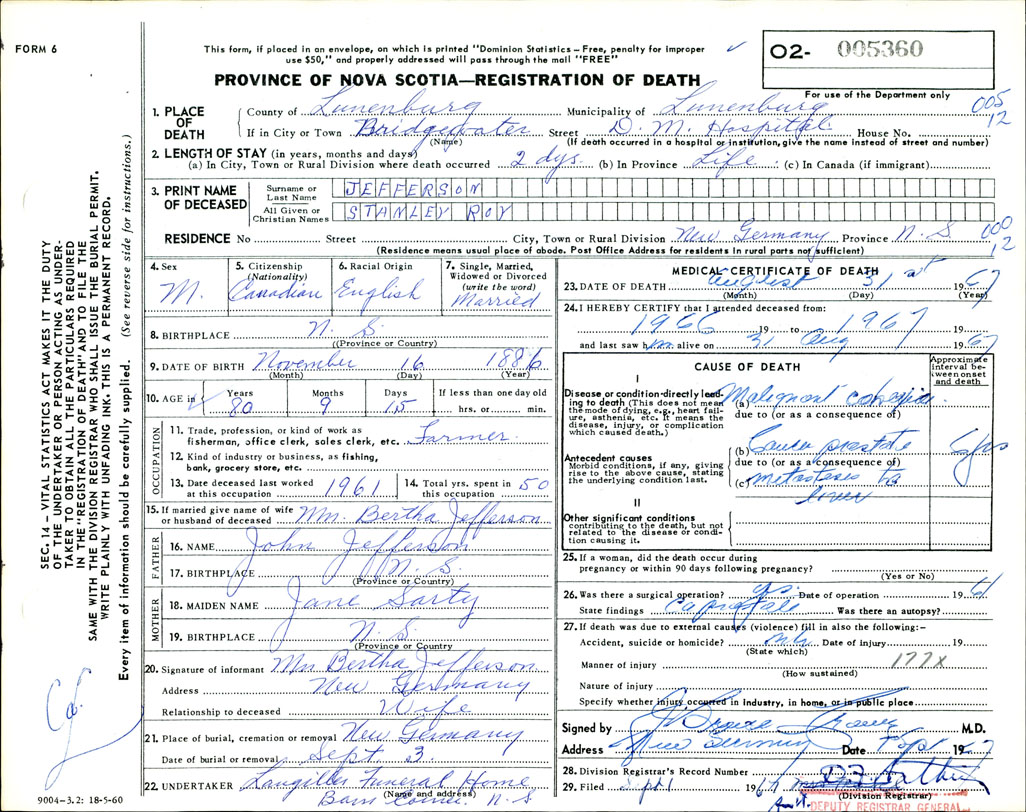 FORM 6
This form, if placed in an envelope, on which is printed "Dominion Statistics – Free, penalty for improper
use $50," and properly addressed will pass through the mail "FREE"
O2- 005360
For use of the Department only
PROVINCE OF NOVA SCOTIA—REGISTRATION OF DEATH
005
12
1. PLACE OF DEATH
County of Lunenburg Municipality of Lunenburg
If in City or Town Bridgewater Street D. M. Hospital House No.
(Name) (If death occurred in a hospital or institution, give the name instead of street and number)
2. LENGTH OF STAY (in years, months and days)
(a) In City, Town or Rural Division where death occurred 2 dys. (b) In Province Life (c) In Canada (if immigrant)
3. PRINT NAME OF DECEASED
Surname or Last Name JEFFERSON
All Given or Christian Names STANLEY ROY
RESIDENCE No Street City, Town or Rural Division New Germany Province N. S
000
12
(Residence means usual place of abode. Post Office Address for residents in rural parts not sufficient)
4. Sex M.
5. Citizenship (Nationality) Canadian
6. Racial Origin English
7. Single, Married, Widowed or Divorced (write the word) Married
8. BIRTHPLACE N. S.
((Province or Country)
9. DATE OF BIRTH November 16 1886
(Month) (Day) (Year)
10. AGE in Years 80 Months 9 Days 15 If less than one day old hrs. or min.
OCCUPATION
11. Trade, profession, or kind of work as
fisherman, office clerk, sales clerk, etc. Farmer.
12. Kind of industry or business, as fishing,
bank, grocery store, etc.
13. Date deceased last worked
at this occupation 1961
14. Total yrs. spent in
this occupation 50
15. If married give name of wife
or husband of deceased Mrs. Bertha Jefferson
FATHER
16. NAME John Jefferson
17. BIRTHPLACE N. S.
(Province or Country)
MOTHER
18. MAIDEN NAME Jane Sarty
19. BIRTHPLACE N. S.
(Province or Country
20. Signature of informant Mrs Bertha Jefferson
Address New Germany
Relationship to deceased Wife
21. Place of burial, cremation or removal New Germany
Date of burial or removal Sept 3
22. UNDERTAKER Funeral Home
(Name and address)
N. S
MEDICAL CERTIFICATE OF DEATH
23. DATE OF DEATH August 31 st 1967
(Month) (Day) (Year)
24. I HEREBY CERTIFY that I attended deceased from:
1966 19 to 1967 19
and last saw him alive on 31 Aug 1967
CAUSE OF DEATH
Approximate interval between onset and death
I
Disease or condition directly leading to death (This does not mean the mode of dying, e.g., heart failure, asthenia, etc. It means the disease, injury, or complication which caused death.)
(a) Malignant
due to (or as a consequence of)
(b) Cancer prostate
Antecedent causes
Morbid conditions, if any, giving rise to the above cause, stating the underlying condition last.
due to (or as a consequence of)
(c)
II
Other significant conditions
contributing to the death, but not related to the disease or condition causing it.
25. If a woman, did the death occur during
pregnancy or within 90 days following pregnancy?
(Yes or No)
26. Was there a surgical operation? Date of operation 1961
State findings Was there an autopsy?
27. If death was due to external causes (violence) fill in also the following:–
Accident, suicide or homicide? Date of injury 19
(State which)
Manner of injury 177X
(How sustained)
Nature of injury
Specify whether injury occurred in industry, in home, or in public place
Signed by M.D.
Address New Germany Date 1967
28. Division Registrar's Record Number
29. Filed Sept 1 1967
(Division Registrar)
DEPUTY REGISTRAR GENERAL
SEC. 14 – VITAL STATISTICS ACT MAKES IT THE DUTY
OF THE UNDERTAKER OR PERSON ACTING AS UNDER-
TAKER TO OBTAIN ALL THE PARTICULARS REQUIRED
IN THE "REGISTRATION OF DEATH" AND TO FILE THE
SAME WITH THE DIVISION REGISTRAR WHO SHALL ISSUE THE BURIAL PERMIT.
WRITE PLAINLY WITH UNFADING INK. THIS IS A PERMANENT RECORD.
Every item of information should be carefully supplied. (See reverse side for instructions.)
9004-3.2: 18-5-60